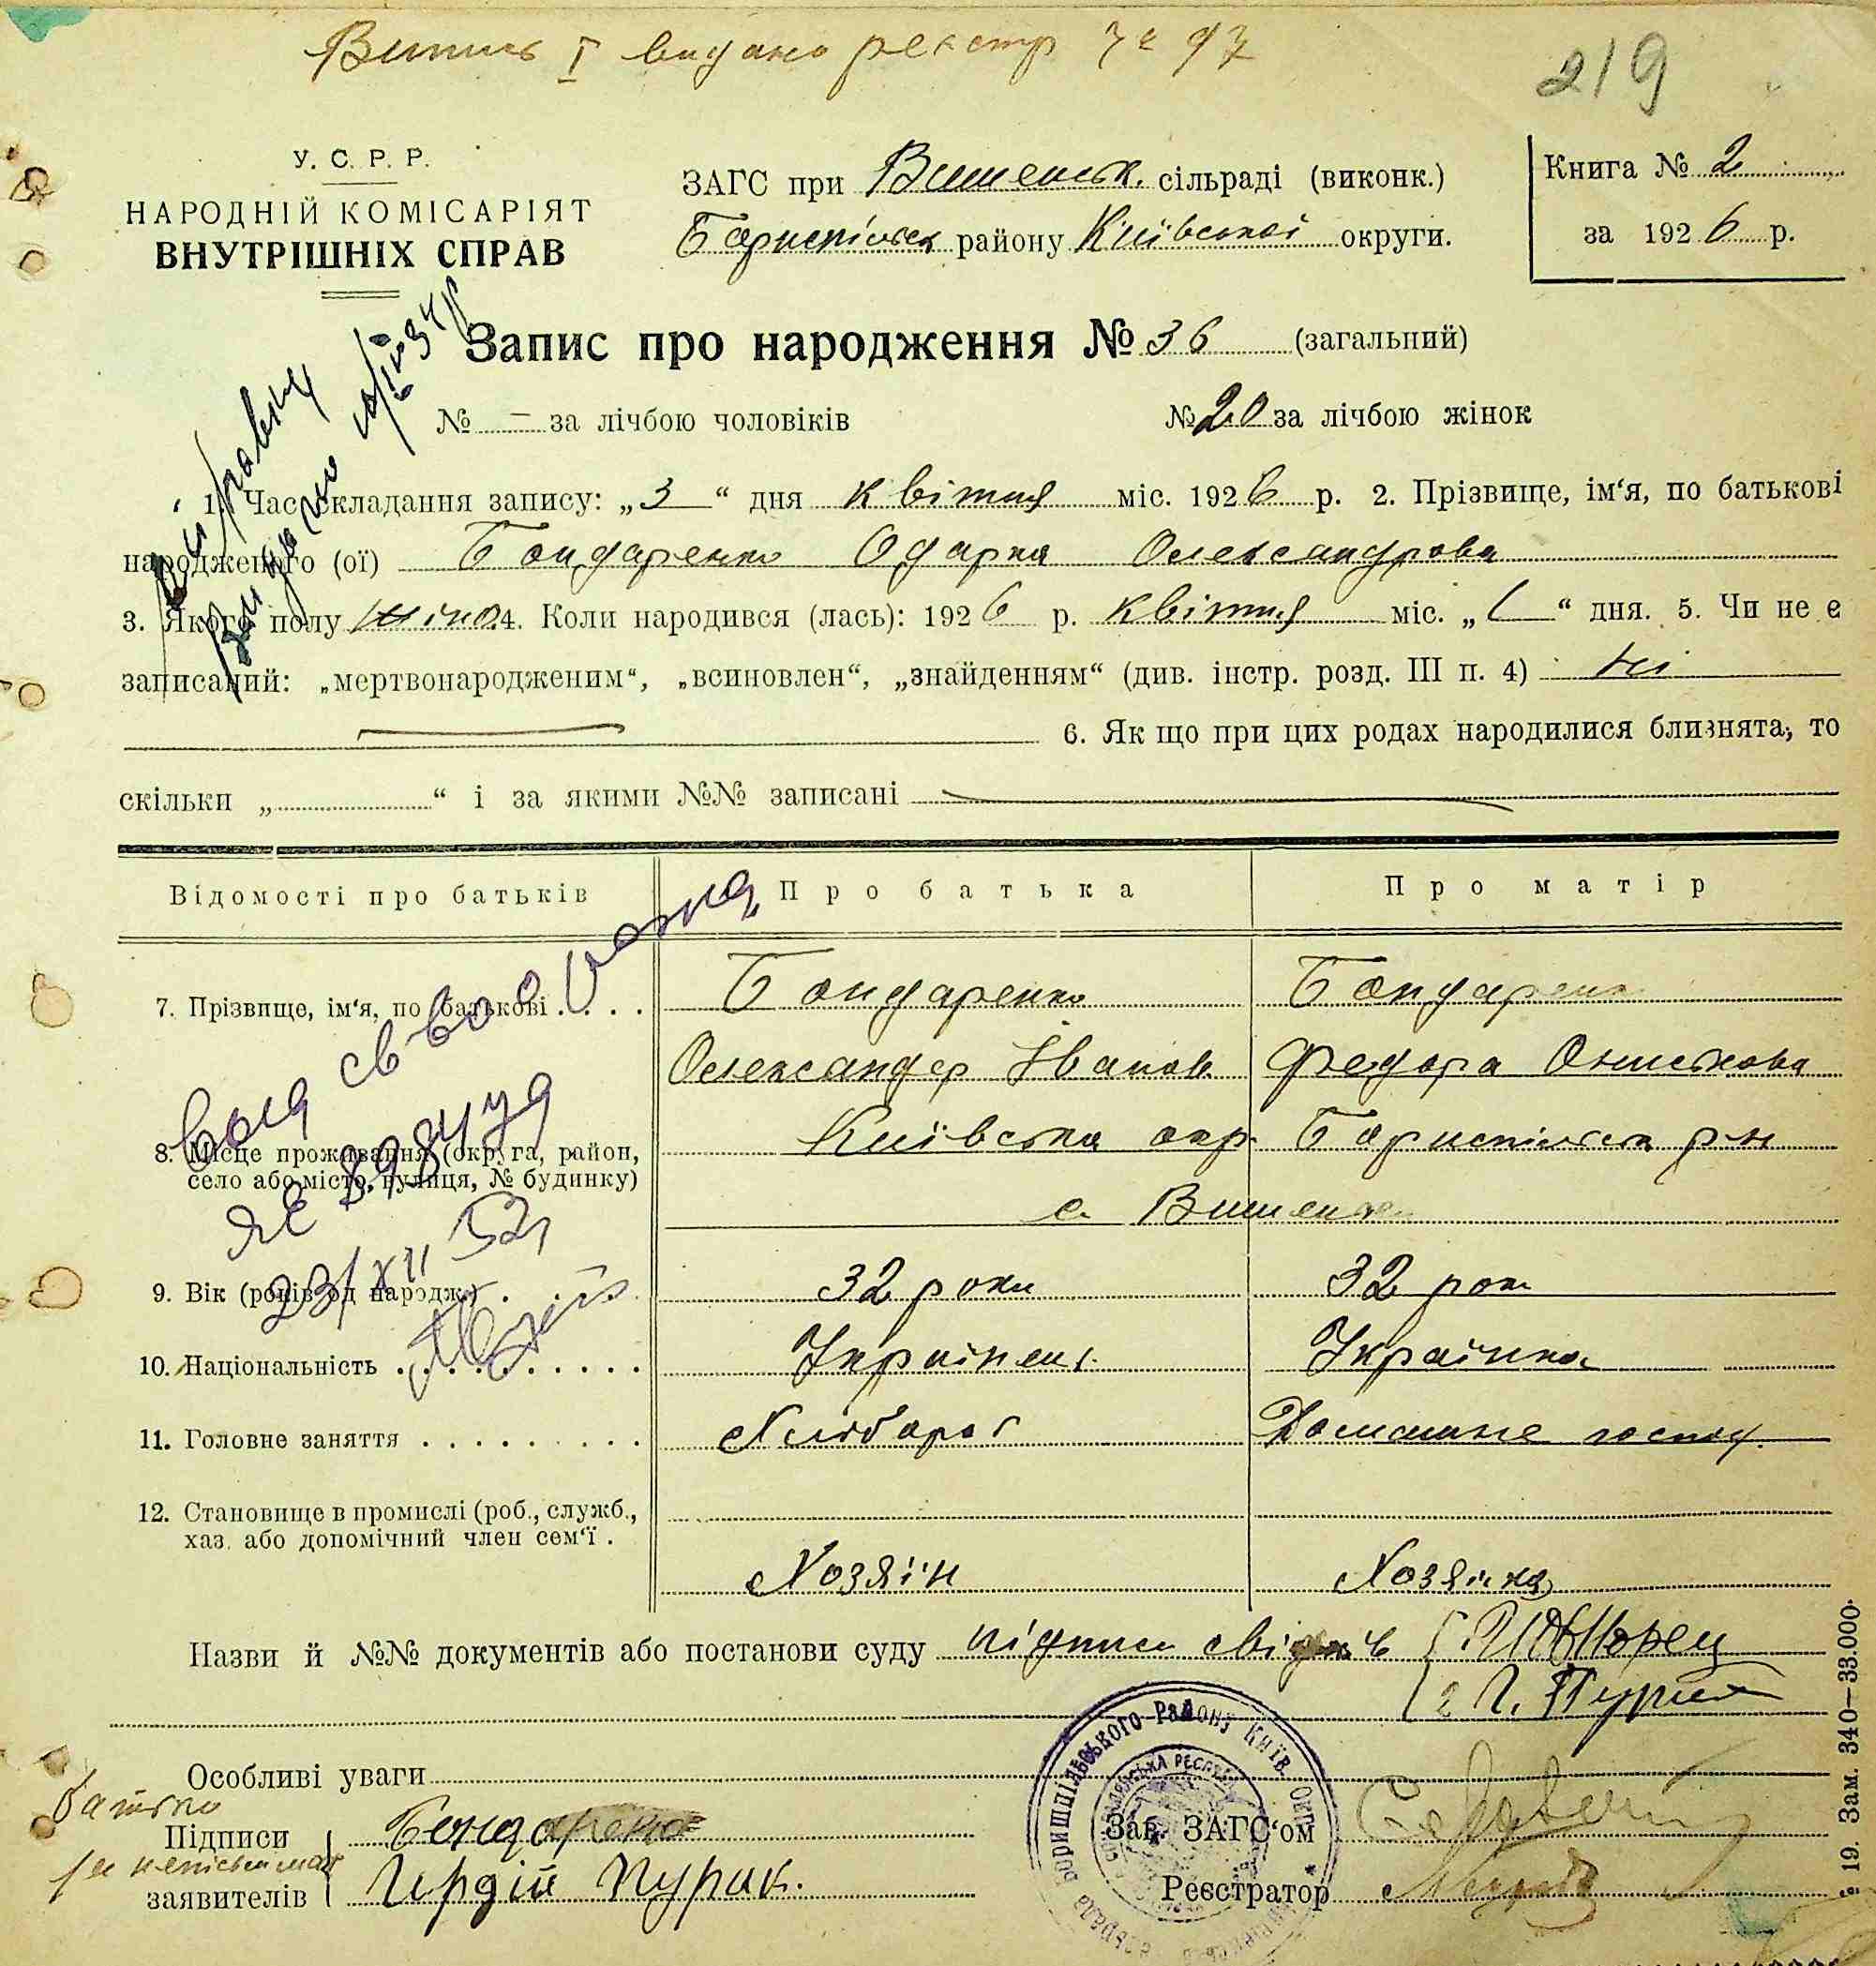 Випись I видано реєстр № 97
219
У. С. Р. Р.
НАРОДНІЙ КОМІСАРІЯТ
ВНУТРІШНІХ СПРАВ
ЗАГС при Вишеньск. сільраді (виконк.)
Бориспільск району Київської округи.
Книга № 2
за 1926 р.
Запис про народження № 36 (загальний)
№ – за лічбою чоловіків № 20 за лічбою жінок
1. Час складання запису: „3“ дня квітня міс. 1926 р. 2. Прізвище, ім‘я, по батькові
народженого (ої) Бондаренко Одарка Олександрова
3. Якого полу жіно. 4. Коли народився (лась): 1926 р. квітня міс. „1“ дня. 5. Чи не є
записаний: „мертвонародженим“, „всиновлен“, „знайденням“ (див. інстр. розд. III п. 4) ні
6. Як що при цих родах народилися близнята, то
скільки „ “ і за якими №№ записані
Відомості про батьків Про батька Про матір
7. Прізвище, ім‘я, по батькові . . . . Бондаренко Бондаренк
Олександер Іванов. Федора Ониськова
8. Місце проживання (округа, район, Київська окр. Бориспільськ р-н
село або місто, вулиця, № будинку)
с. Вишеньк
9. Вік (років од народж.) . . . 32 роки 32 рок
10. Національність . . . . . . . . . Українець Українка
11. Головне заняття . . . . . . . . . Хлібороб Домашнє господ.
12. Становище в промислі (роб., служб.,
хаз. або допомічний член сем‘ї .
Хозяїн Хозяйка
Назви й №№ документів або постанови суду підписи свідків 1.
2 Г. Пурик
Особливі уваги
батько
Підписи
Бондаренко
за неписьмен
заявителів
Гирдій Пурик.
Зав. ЗАГС‘ом
Реєстратор
19. Зам. 340—33.000.
справку
видано
23/XII 52
Бориспільського Району Київ. Окр.